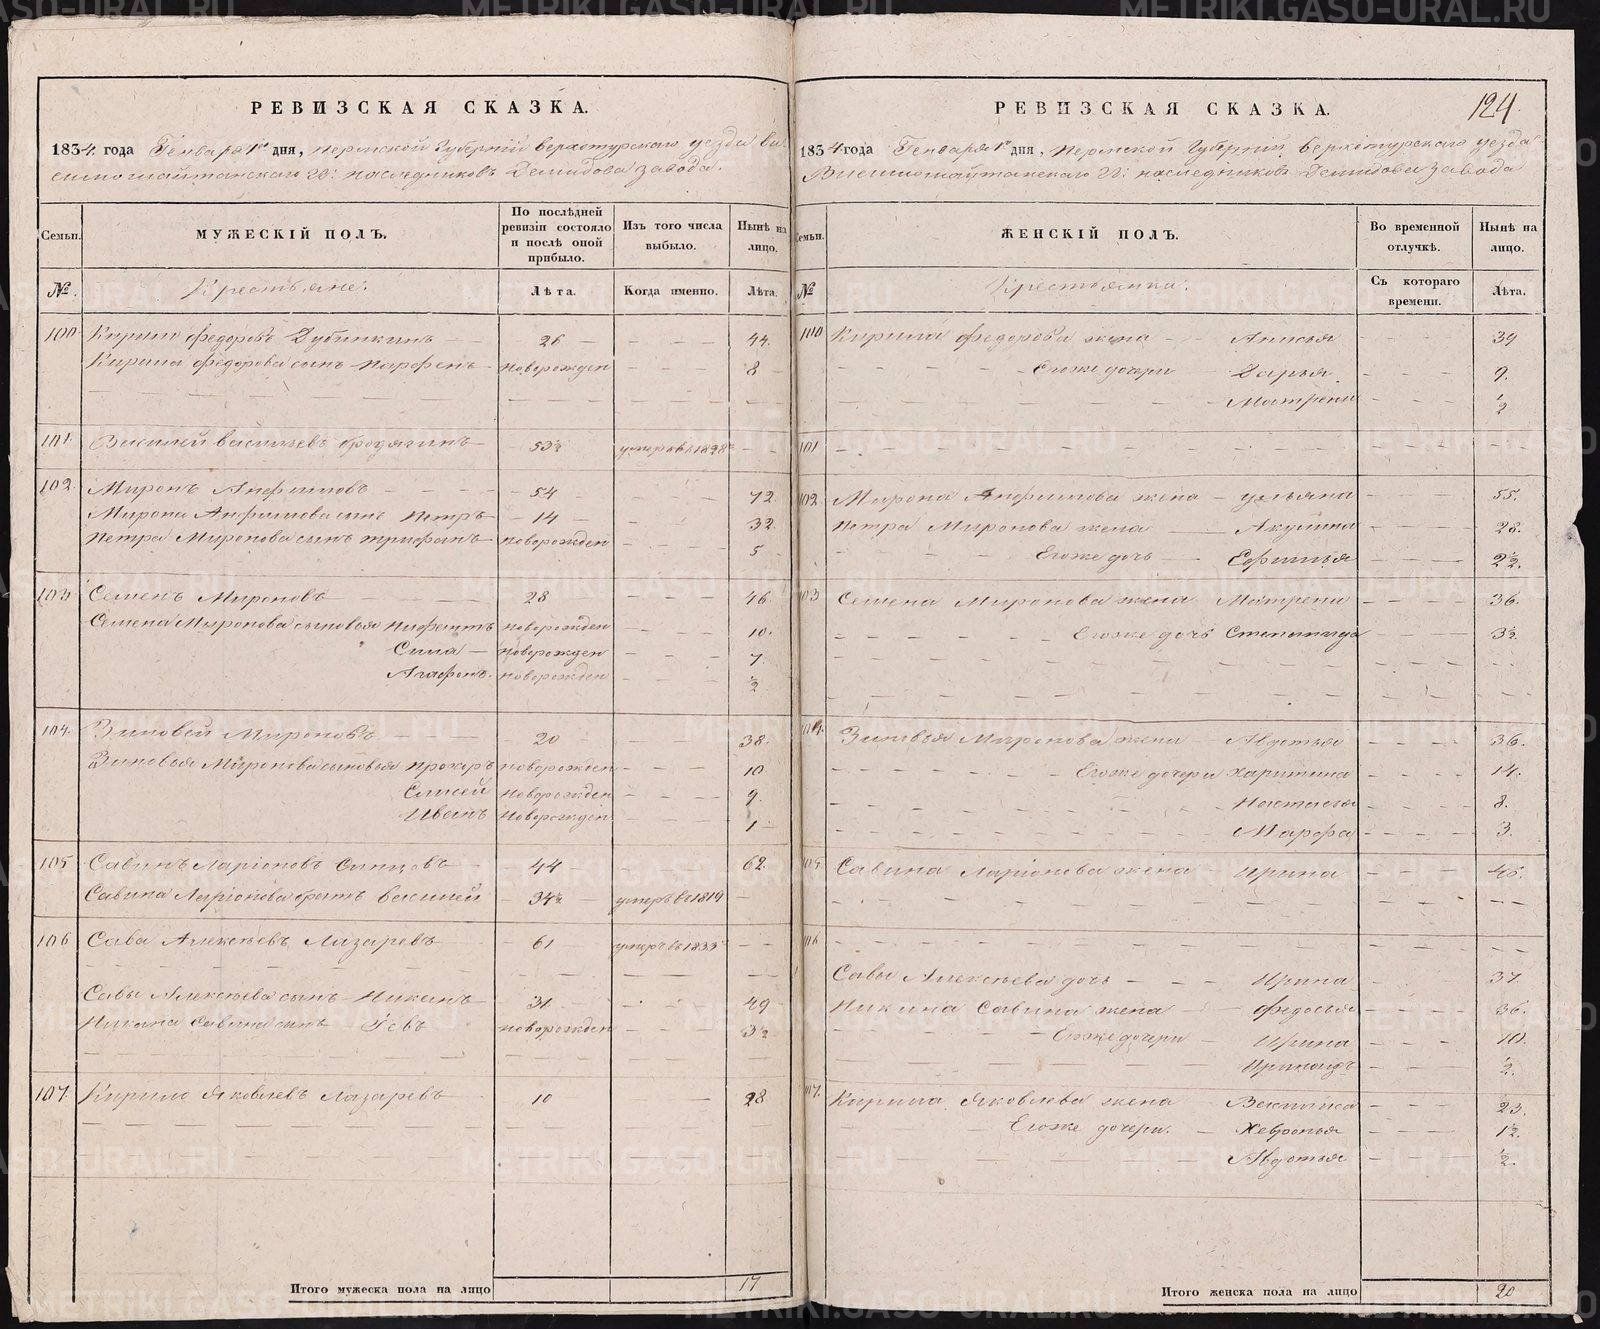 РЕВИЗСКАЯ СКАЗКА.
1834 года Генваря 1го дня, Пермской Губернiи Верхотурского уезда Ви
симошайтанского Гг: наследниковъ Демидова завода.
Семьи. МУЖЕСКIЙ ПОЛЪ. По послѣдней ревизiи состояло и послѣ оной прибыло. Изъ того числа выбыло. Нынѣ на лицо.
№. Крестьяне. Лѣта. Когда именно. Лѣта.
100 Кирило Федоровъ Дубинкинъ 26 44.
Кирила Федорова сынъ Парфенъ новорожден 8
101. Василей Васильевъ Бродягинъ 53½ умеръ въ 1828
102. Миронъ Анфимовъ 54 72
Мирона Анфимова сынъ Петръ 14 32.
Петра Миронова сынъ Трифанъ новорожден 5
103 Семенъ Мироновъ 28 46.
Семена Миронова сыновья новорожден 10.
Сила новорожден 7.
Агафонъ. новорожден ½
104. Зиновей Мироновъ 20 38.
Зиновья Миронова сыновья Прохоръ новорожден 10
Елисей новорожден 9.
Иванъ новорожден 1
105 Савинъ Ларiоновъ 44 62.
Савина Ларiонова братъ Василей 34½ умеръ въ 1819
106 Сава Алексѣевъ Лазаревъ 61 умеръ въ 1833
Савы Алексѣева сынъ Никанъ 31 49
Никана Савина сынъ новорожден 3½
107. Кирило Яковлевъ Лазаревъ 10 28
Итого мужеска пола на лицо 17
124.
РЕВИЗСКАЯ СКАЗКА.
1834 года Генваря 1го дня, Пермской Губернiи Верхотурского уезда
Висимошайтанского Гг: наследниковъ Демидова завода
Семьи. ЖЕНСКIЙ ПОЛЪ. Во временной отлучкѣ. Нынѣ на лицо.
№ Крестьянки. Съ котораго времени. Лѣта.
100 Кирила Федорова жена Анисья 39
Егоже дочери Дарья 9.
Матрена ½
101
102 Мирона Анфимова жена Ульяна 55.
Петра Миронова жена Акулина 28.
Егоже дочь Ефимья 2½.
103 Семена Миронова жена Матрена 36.
Егоже дочь Степанида 3½.
104. Зиновья Миронова жена Авдотья 36.
Егоже дочери Харитина 14.
Настасья 8.
Марфа 3.
105. Савина Ларiонова жена Ирина
106
Савы Алексѣева дочь Ирина 37.
Никина Савина жена Федосья 36.
Егоже дочери Ирина 10.
½.
107. Кирила Яковлева жена Василиса 23.
Егоже дочери. Хевронья 1½.
Авдотья ½.
Итого женска пола на лицо 20
METRIKI.GASO-URAL.RU